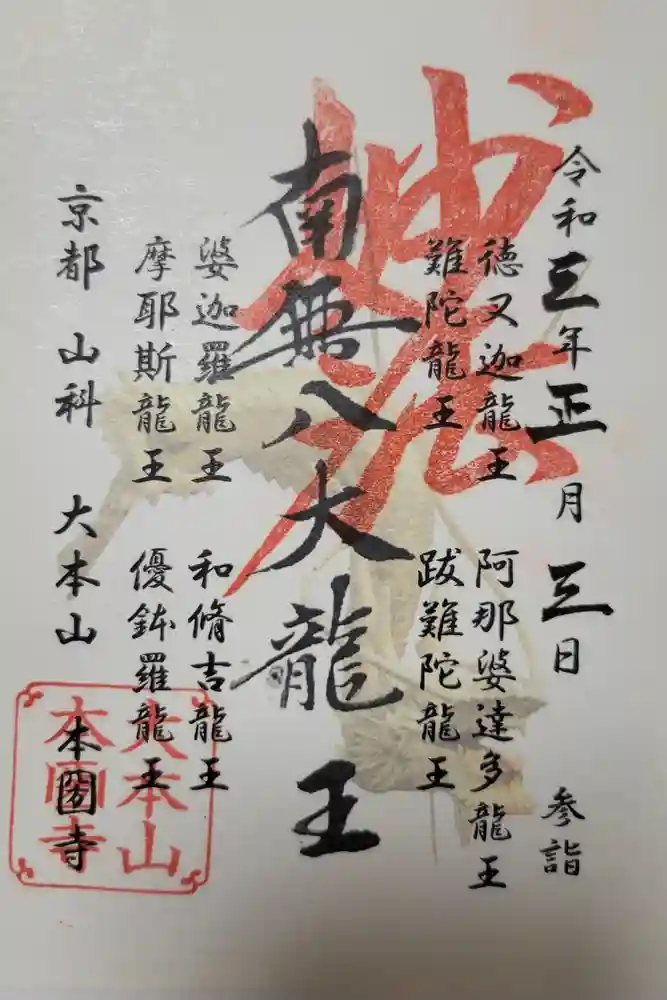 令和三年正月三日　参詣
徳叉迦龍王　阿那婆達多龍王
難陀龍王　跋難陀龍王
妙法
南無八大龍王
婆迦羅龍王　和脩吉龍王
摩耶斯龍王　優鉢羅龍王
京都　山科　大本山　本圀寺
大本山
本圀寺